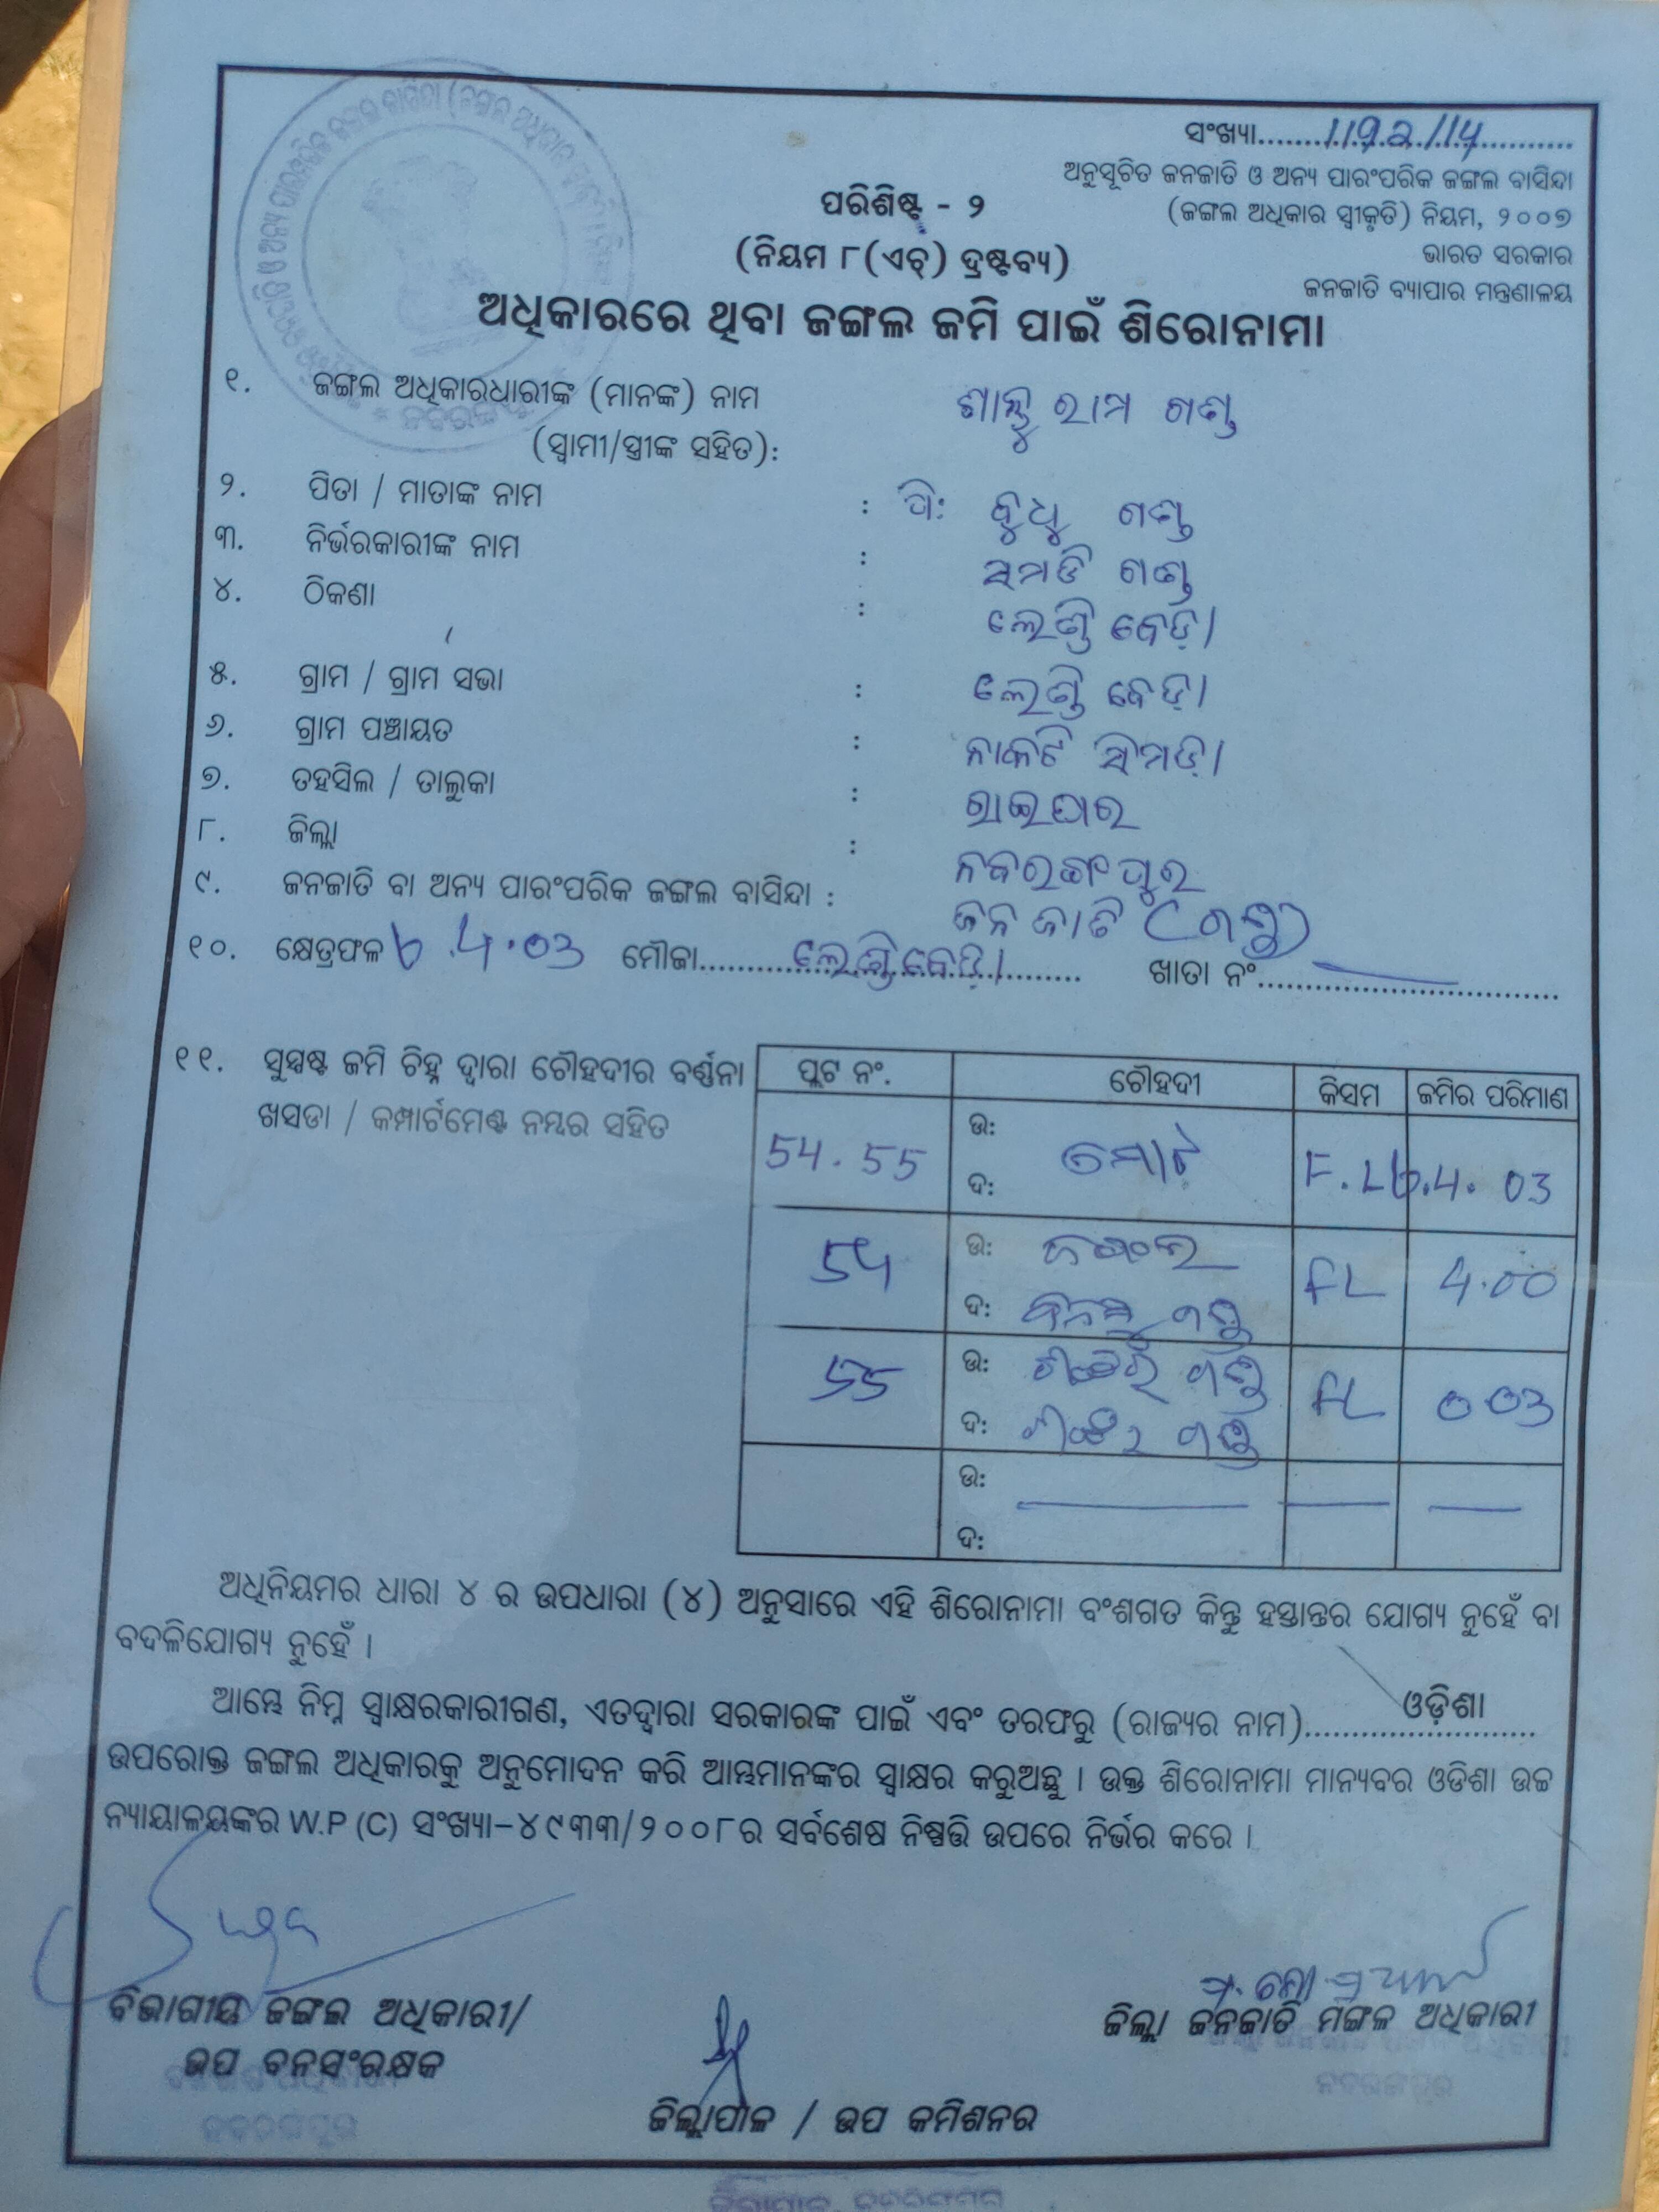 ସଂଖ୍ୟା.......1192/14............
ଅନୁସୂଚିତ ଜନଜାତି ଓ ଅନ୍ୟ ପାରଂପରିକ ଜଙ୍ଗଲ ବାସିନ୍ଦା
ପରିଶିଷ୍ଟ - ୨
(ଜଙ୍ଗଲ ଅଧିକାର ସ୍ୱୀକୃତି) ନିୟମ, ୨୦୦୭
(ନିୟମ ୮(ଏଚ୍) ଦ୍ରଷ୍ଟବ୍ୟ)
ଭାରତ ସରକାର
ଜନଜାତି ବ୍ୟାପାର ମନ୍ତ୍ରଣାଳୟ
ଅଧିକାରରେ ଥିବା ଜଙ୍ଗଲ ଜମି ପାଇଁ ଶିରୋନାମା
୧. ଜଙ୍ଗଲ ଅଧିକାରଧାରୀଙ୍କ (ମାନଙ୍କ) ନାମ ରାମ ଗଣ୍ଡ
(ସ୍ୱାମୀ/ସ୍ତ୍ରୀଙ୍କ ସହିତ):
୨. ପିତା / ମାତାଙ୍କ ନାମ : ପି: ବୁଧୁ ଗଣ୍ଡ
୩. ନିର୍ଭରକାରୀଙ୍କ ନାମ : ଗଣ୍ଡ
୪. ଠିକଣା : ଲେଣ୍ଡି ବେଡ଼ା
୫. ଗ୍ରାମ / ଗ୍ରାମ ସଭା : ଲେଣ୍ଡି ବେଡ଼ା
୬. ଗ୍ରାମ ପଞ୍ଚାୟତ : ନାକଟି ସିମଡ଼ା
୭. ତହସିଲ / ତାଲୁକା : ରାଇଘର
୮. ଜିଲ୍ଲା : ନବରଙ୍ଗପୁର
୯. ଜନଜାତି ବା ଅନ୍ୟ ପାରଂପରିକ ଜଙ୍ଗଲ ବାସିନ୍ଦା : ଜନ ଜାତି (ଗଣ୍ଡ)
୧୦. କ୍ଷେତ୍ରଫଳ 4.03 ମୌଜା......ଲେଣ୍ଡିବେଡ଼ା...... ଖାତା ନଂ............
୧୧. ସୁସ୍ପଷ୍ଟ ଜମି ଚିହ୍ନ ଦ୍ୱାରା ଚୌହଦୀର ବର୍ଣ୍ଣନା
ଖସଡା / କମ୍ପାର୍ଟମେଣ୍ଟ ନମ୍ବର ସହିତ
ପ୍ଲଟ ନଂ. ଚୌହଦୀ କିସମ ଜମିର ପରିମାଣ
54.55 ଉ: ଦ: ମୋଟ F.L 4.03
54 ଉ: ଜଙ୍ଗଲ FL 4.00
ଦ: ଗଣ୍ଡ
55 ଉ: ଗଣ୍ଡ FL 0.03
ଦ: ଗଣ୍ଡ
ଉ:
ଦ:
ଅଧିନିୟମର ଧାରା ୪ ର ଉପଧାରା (୪) ଅନୁସାରେ ଏହି ଶିରୋନାମା ବଂଶଗତ କିନ୍ତୁ ହସ୍ତାନ୍ତର ଯୋଗ୍ୟ ନୁହେଁ ବା
ବଦଳିଯୋଗ୍ୟ ନୁହେଁ ।
ଆମ୍ଭେ ନିମ୍ନ ସ୍ୱାକ୍ଷରକାରୀଗଣ, ଏତଦ୍ୱାରା ସରକାରଙ୍କ ପାଇଁ ଏବଂ ତରଫରୁ (ରାଜ୍ୟର ନାମ)........ଓଡ଼ିଶା........
ଉପରୋକ୍ତ ଜଙ୍ଗଲ ଅଧିକାରକୁ ଅନୁମୋଦନ କରି ଆମ୍ଭମାନଙ୍କର ସ୍ୱାକ୍ଷର କରୁଅଛୁ । ଉକ୍ତ ଶିରୋନାମା ମାନ୍ୟବର ଓଡିଶା ଉଚ୍ଚ
ନ୍ୟାୟାଳୟଙ୍କର W.P (C) ସଂଖ୍ୟା-୪୯୩୩/୨୦୦୮ର ସର୍ବଶେଷ ନିଷ୍ପତ୍ତି ଉପରେ ନିର୍ଭର କରେ ।
ବିଭାଗୀୟ ଜଙ୍ଗଲ ଅଧିକାରୀ/
ଉପ ବନସଂରକ୍ଷକ
ଜିଲ୍ଲା ଜନଜାତି ମଙ୍ଗଳ ଅଧିକାରୀ
ନବରଙ୍ଗପୁର
ଜିଲ୍ଲାପାଳ / ଉପ କମିଶନର
ନବରଙ୍ଗପୁର